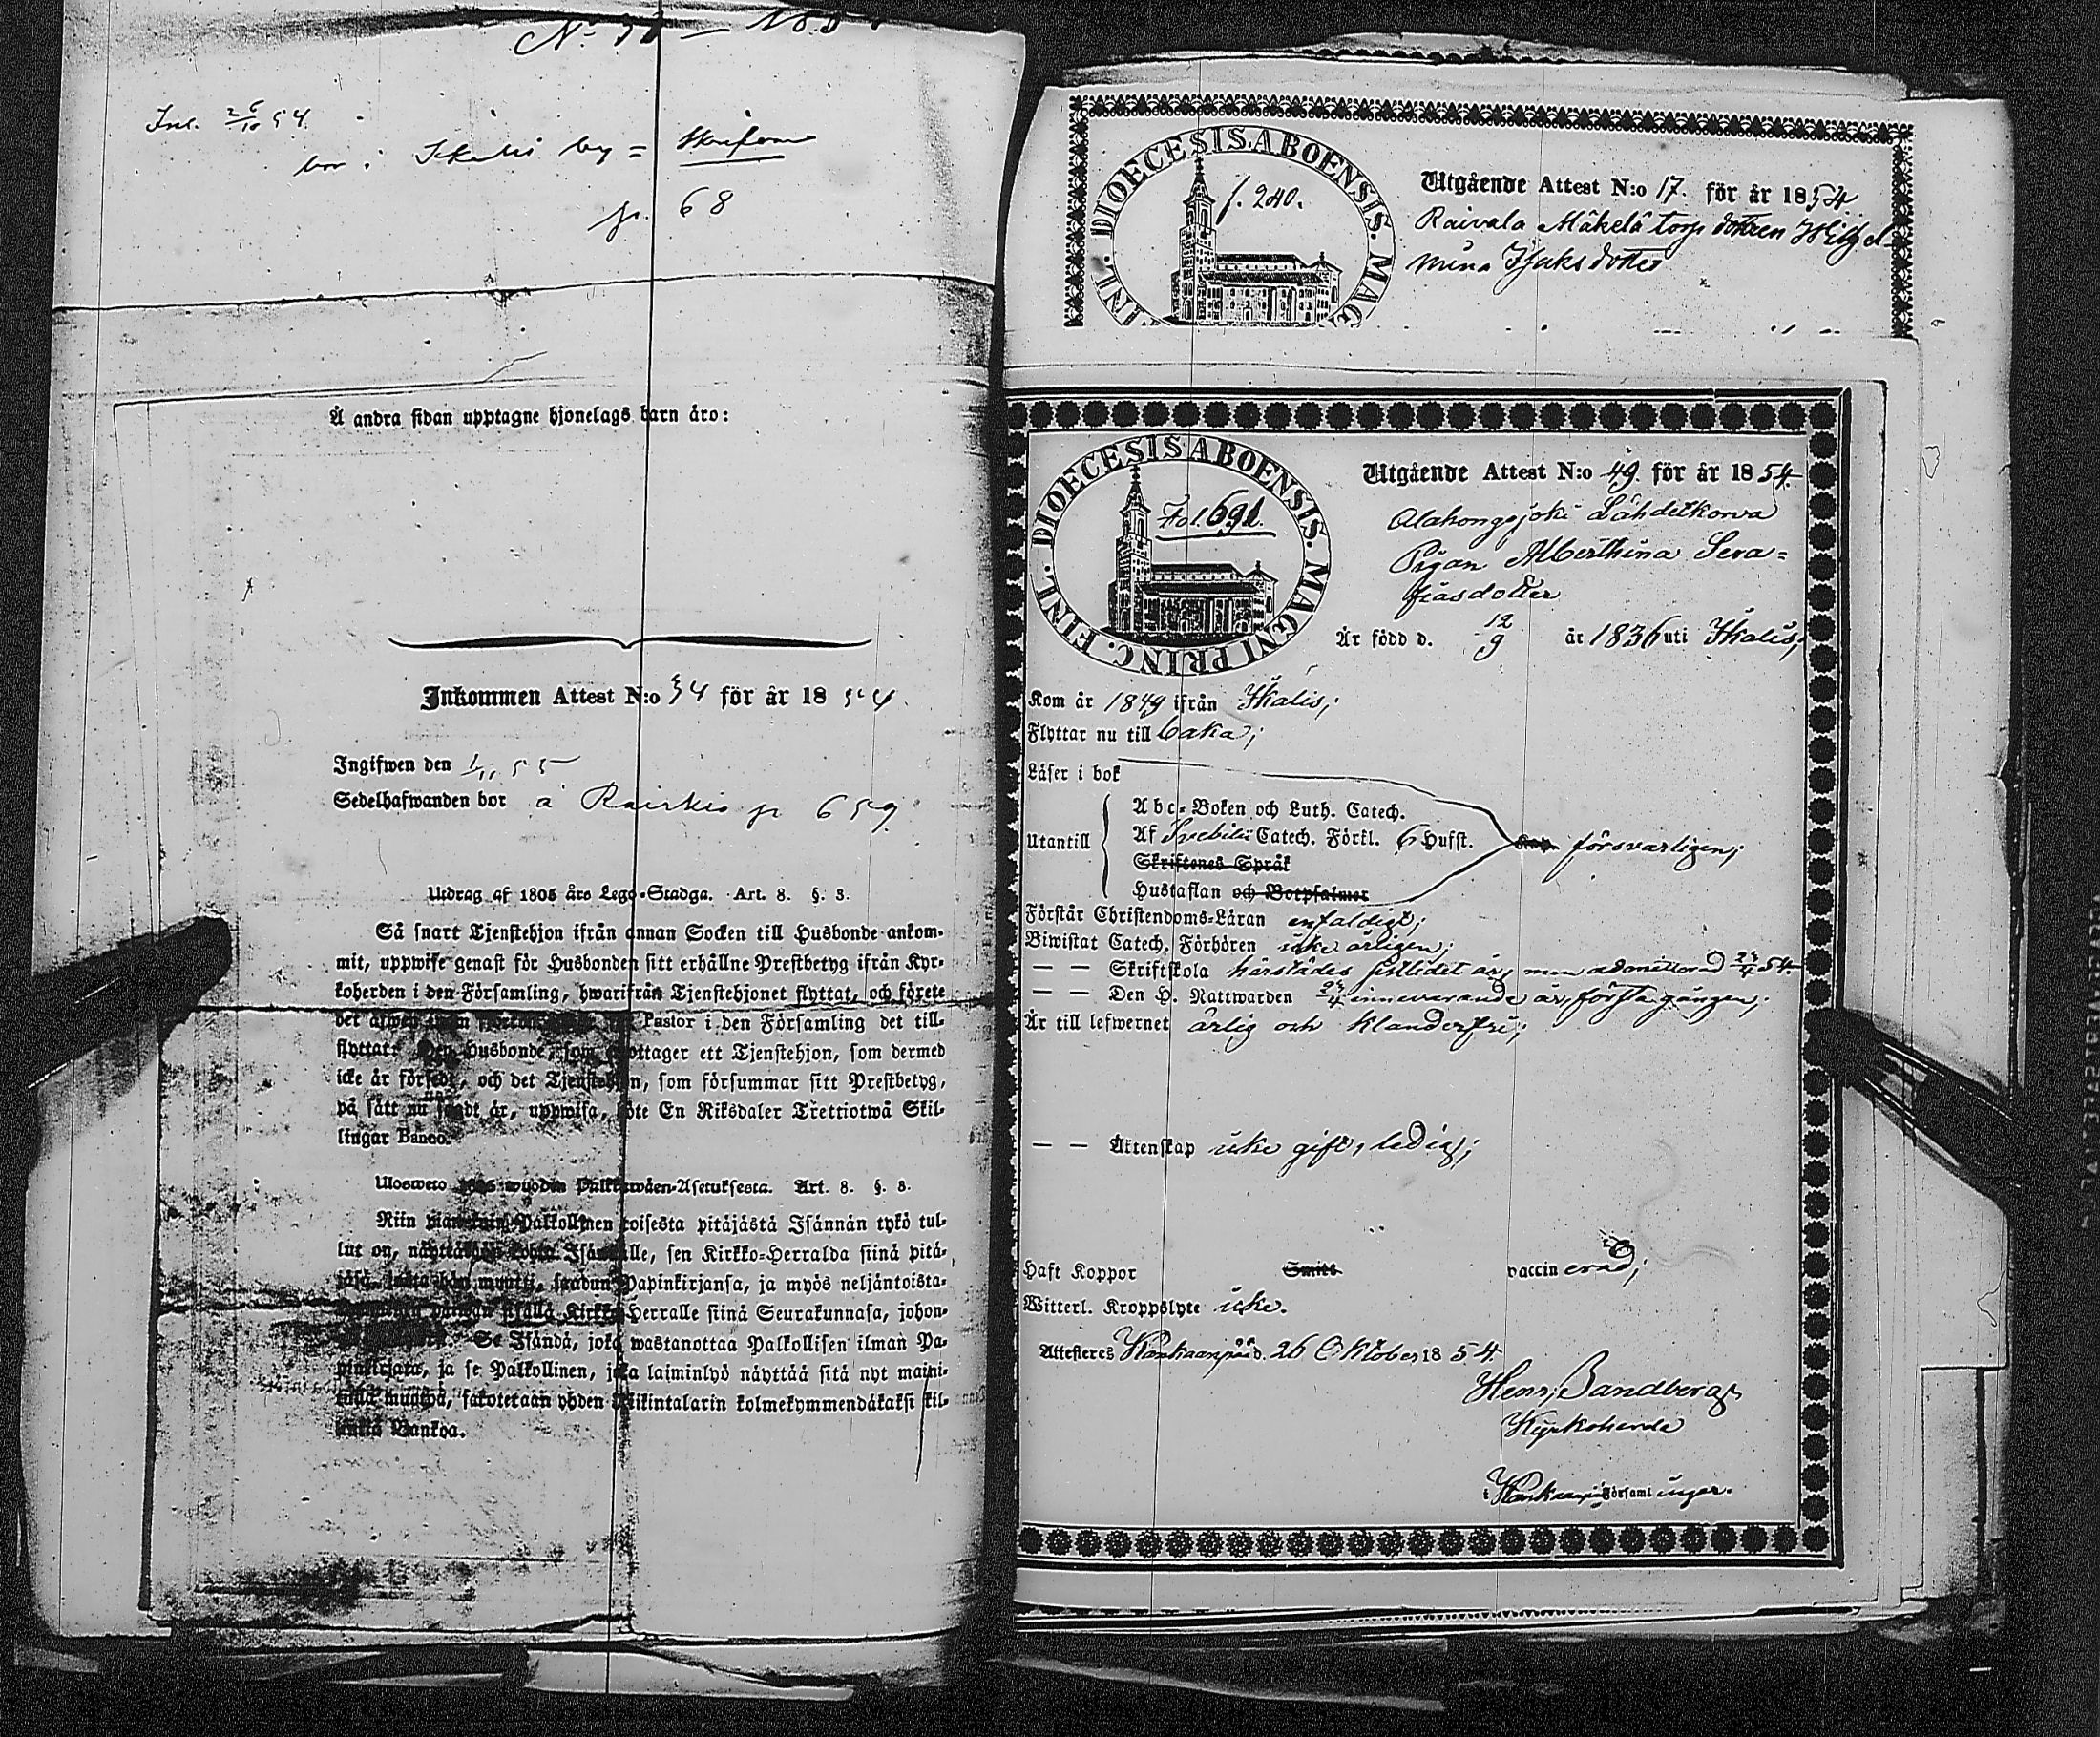 Inl. 26/10 54.
bor i Ikalis by =
p. 68
Å andra sidan upptagne hjonelags barn äro:
Inkommen Attest N:o 34 för år 1854.
Ingifwen den 1/11 55
Sedelhafwanden bor å p 659.
Utdrag af 1805 års Lego-Stadga. Art. 8. §. 3.
Så snart Tjenstehjon ifrån annan Socken till Husbonde ankom-
mit, uppwise genast för Husbonden sitt erhållne Prestbetyg ifrån Kyr-
koherden i den Församling, hwarifrån Tjenstehjonet flyttat, och förete
det Pastor i den Församling det till-
flyttat: Den Husbonde, som emottager ett Tjenstehjon, som dermed
icke är försedt, och det Tjenstehjon, som försummar sitt Prestbetyg,
på sätt nu sagdt är, uppwisa, böte En Riksdaler Trettiotwå Skil-
lingar Banco.
Ulosweto wuoden Palkkawäen-Asetuksesta. Art. 8. §. 3.
Niin Palkollinen toisesta pitäjästä Isännän tykö tul-
lut on, Isännälle, sen Kirkko-Herralda siinä pitä-
jäsä, muutti, saadun Papinkirjansa, ja myös neljäntoista-
sisällä Kirkko-Herralle siinä Seurakunnasa, johon-
Se Isändä, joka wastanottaa Palkollisen ilman Pa-
pinkirjata, ja se Palkollinen, joka laiminlyö näyttää sitä nyt maini-
tulla muotoa, sakotetaan yhden Riikintalarin kolmekymmendäkaksi kil-
Bankoa.
DIOECESIS ABOENSIS. MAGNI FINL.
f. 240.
Utgående Attest N:o 17. för år 1854
Raivala Mäkelä torp dottren Wilhel-
mina Isaksdotter
DIOECESIS ABOENSIS. MAGNI PRINC. FINL.
Fol. 691.
Utgående Attest N:o 49. för år 1854.
Alahongojoki Lähdetkorva
Pigan Alberthina Sera-
fiasdotter
Är född d. 12/9 år 1836 uti Ikalis,
Kom år 1849 ifrån Ikalis;
Flyttar nu till baka;
Läser i bok
Utantill
Abc-Boken och Luth. Catech.
Af Svebilii Catech. Förkl. 6 Hufst. försvarligen;
Skriftenes Språk
Hustaflan och Botpsalmer
Förstår Christendoms-Läran enfaldigt;
Biwistat Catech. Förhören icke årligen;
— — Skriftskola härstädes sistlidet år, men admitterad 23/4 54.
— — Den H. Nattwarden 23/4 innevarande år, första gången;
Är till lefwernet ärlig och klanderfri;
— — Äktenskap icke gift, ledig;
Haft Koppor Smitt vaccinerad;
Witterl. Kroppslyte icke.
Attesteres Kankaanpää d. 26 Oktober 1854.
Henr. Sandberg
Kyrkoherde
i Kankaanpää Församlingar.